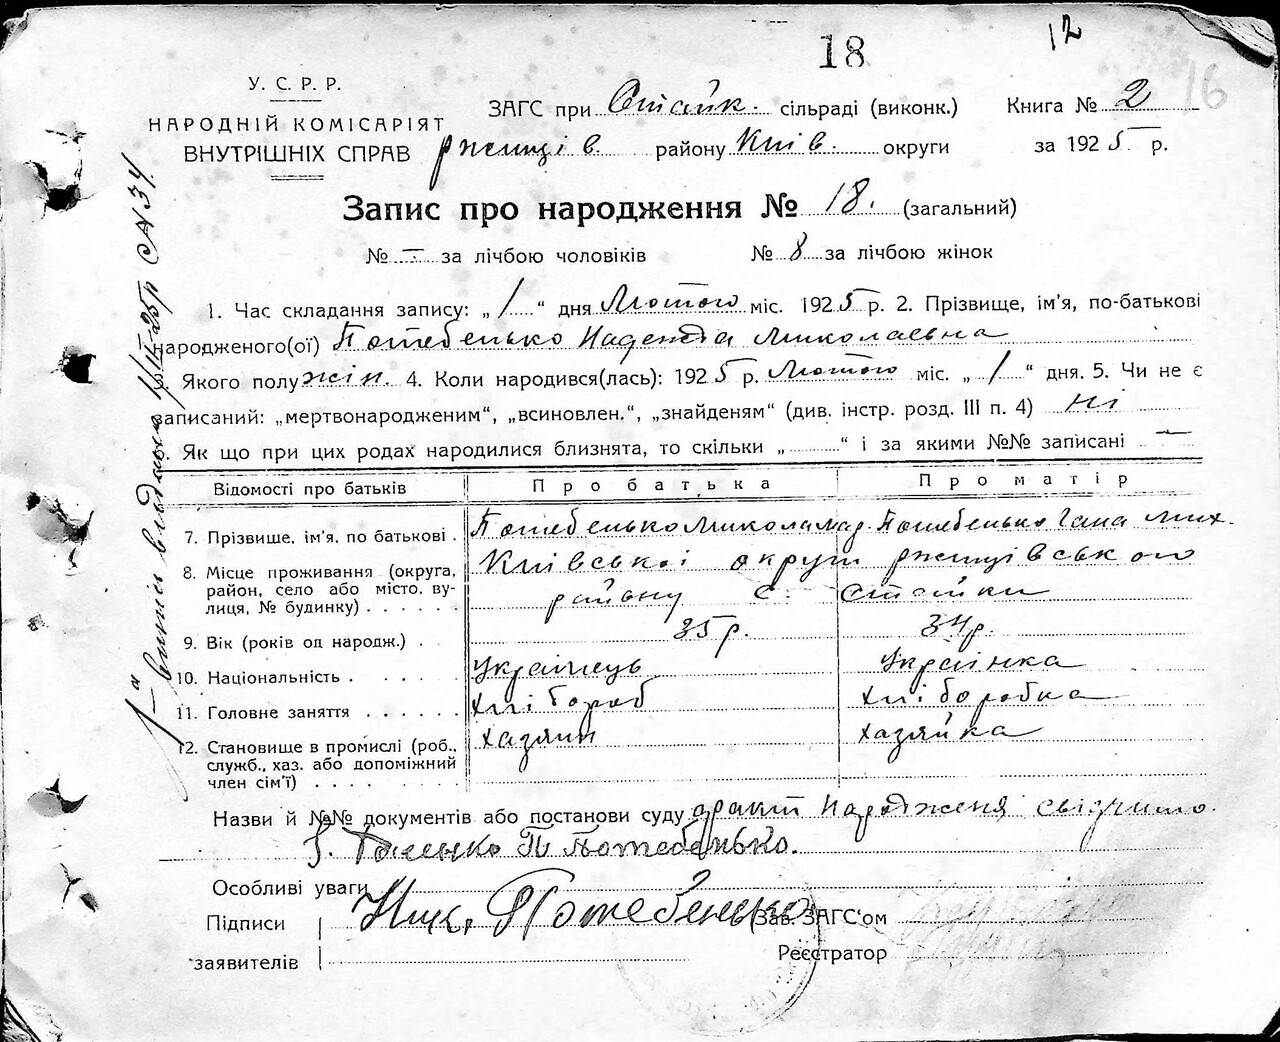 18
12
16
У. С. Р. Р.
НАРОДНІЙ КОМІСАРІЯТ
ВНУТРІШНІХ СПРАВ
ЗАГС при Стайк. сільраді (виконк.)
Книга № 2
ржищів. району Київ. округи
за 1925 р.
Запис про народження № 18. (загальний)
№ — за лічбою чоловіків № 8 за лічбою жінок
1. Час складання запису: „1“ дня Лютого міс. 1925 р. 2. Прізвище, ім'я, по-батькові
народженого(ої) Потебенько Надежда Миколаевна
Якого полу жін. 4. Коли народився(лась): 1925 р. Лютого міс. „1“ дня. 5. Чи не є
записаний: „мертвонародженим“, „всиновлен.“, „знайденям“ (див. інстр. розд. III п. 4) ні
. Як що при цих родах народилися близнята, то скільки „ “ і за якими №№ записані —
Відомості про батьків Про батька Про матір
7. Прізвище, ім'я, по батькові . Потебенько Микола Потебенько Гана Мих.
8. Місце проживання (округа, район, село або місто, вулиця, № будинку) . . . . . .
Київської округи ржищівського
району с. Стайки
9. Вік (років од народж.) . . 35 р. 34 р.
10. Національність . . . . . Українець Українка
11. Головне заняття . . . . . . Хлібороб Хліборобка
12. Становище в промислі (роб., служб., хаз. або допоміжний член сім'ї) . . . . . хазяин хазяйка
Назви й №№ документів або постанови суду факт Народженя свідчило
П Потебенько.
Особливі уваги
Підписи Ник. Потебенько Зав. ЗАГС'ом
заявителів Реєстратор